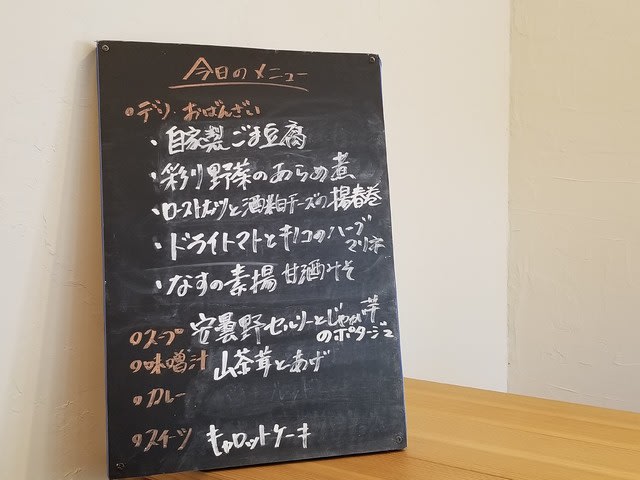 今日のメニュー
◦デリ・おばんざい
・自家製ごま豆腐
・彩り野菜のあらめ煮
・ローストナッツと酒粕チーズの揚春巻
・ドライトマトとキノコのハーブマリネ
・なすの素揚 甘酒みそ
◦スープ 安曇野セルリーとじゃが芋のポタージュ
◦味噌汁 山茶茸とあげ
◦カレー
◦スイーツ キャロットケーキ